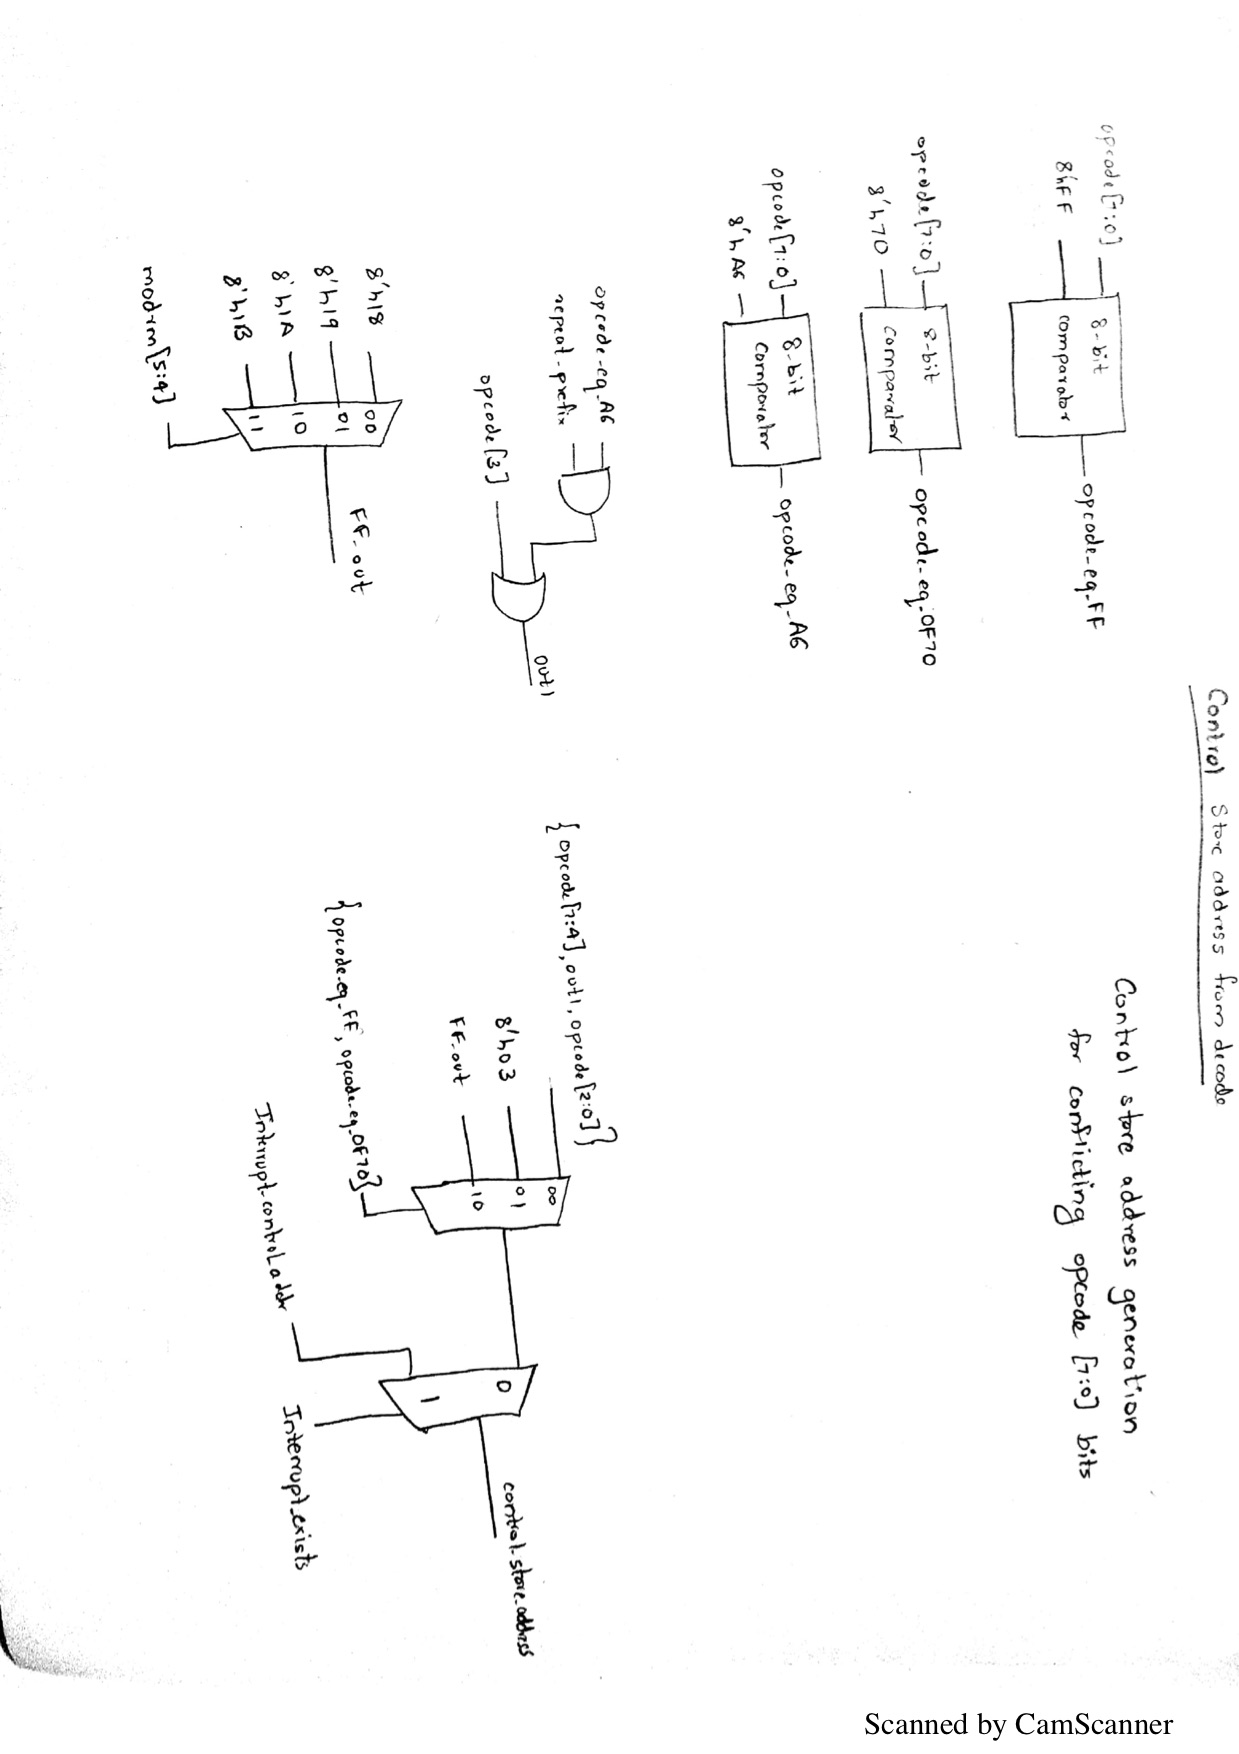 Control Store address from decode
Control store address generation
for conflicting opcode [7:0] bits
opcode[7:0]
8'hFF
8-bit
comparator
opcode_eq_FF
opcode[7:0]
8'h70
8-bit
comparator
opcode_eq_0F70
opcode[7:0]
8'hA6
8-bit
comparator
opcode_eq_A6
opcode_eq_A6
repeat_prefix
opcode[3]
out1
{opcode[7:4], out1, opcode[2:0]}
8'h03
FF_out
00
01
10
{opcode_eq_FF, opcode_eq_0F70}
8'h18
8'h19
8'h1A
8'h1B
00
01
10
11
modrm[5:4]
FF_out
Interrupt_control_addr
0
1
Interrupt_exists
control_store_address
Scanned by CamScanner